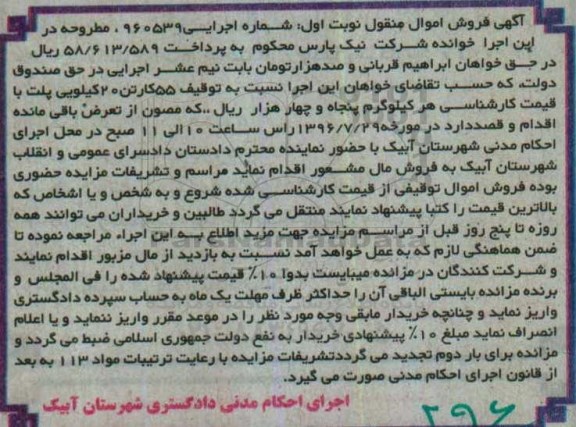 آگهی فروش اموال منقول نوبت اول: شماره اجرایی۹۶۰۵۳۹ ، مطروحه در
این اجرا خوانده شرکت نیک پارس محکوم به پرداخت ۵۸/۶۱۳/۵۸۹ ریال
در حق خواهان ابراهیم قربانی و صدهزارتومان بابت نیم عشر اجرایی در حق صندوق
دولت، که حسب تقاضای خواهان این اجرا نسبت به توقیف ۵۵کارتن۲۰کیلویی پلت با
قیمت کارشناسی هر کیلوگرم پنجاه و چهار هزار ریال ،،که مصون از تعرض باقی مانده
اقدام و قصددارد در مورخه۱۳۹۶/۷/۲۹راس ساعت ۱۰الی ۱۱ صبح در محل اجرای
احکام مدنی شهرستان آبیک با حضور نماینده محترم دادستان دادسرای عمومی و انقلاب
شهرستان آبیک به فروش مال مشعور اقدام نماید مراسم و تشریفات مزایده حضوری
بوده فروش اموال توقیفی از قیمت کارشناسی شده شروع و به شخص و یا اشخاص که
بالاترین قیمت را کتبا پیشنهاد نمایند منتقل می گردد طالبین و خریداران می توانند همه
روزه تا پنج روز قبل از مراسم مزایده جهت مزید اطلاع به این اجراء مراجعه نموده تا
ضمن هماهنگی لازم که به عمل خواهد آمد نسبت به بازدید از مال مزبور اقدام نمایند
و شرکت کنندگان در مزائده میبایست بدوا ۱۰٪ قیمت پیشنهاد شده را فی المجلس و
برنده مزائده بایستی الباقی آن را حداکثر ظرف مهلت یک ماه به حساب سپرده دادگستری
واریز نماید و چنانچه خریدار مابقی وجه مورد نظر را در موعد مقرر واریز ننماید و یا اعلام
انصراف نماید مبلغ ۱۰٪ پیشنهادی خریدار به نفع دولت جمهوری اسلامی ضبط می گردد و
مزائده برای بار دوم تجدید می گرددتشریفات مزایده با رعایت ترتیبات مواد ۱۱۳ به بعد
از قانون اجرای احکام مدنی صورت می گیرد.
اجرای احکام مدنی دادگستری شهرستان آبیک
۲۹۶